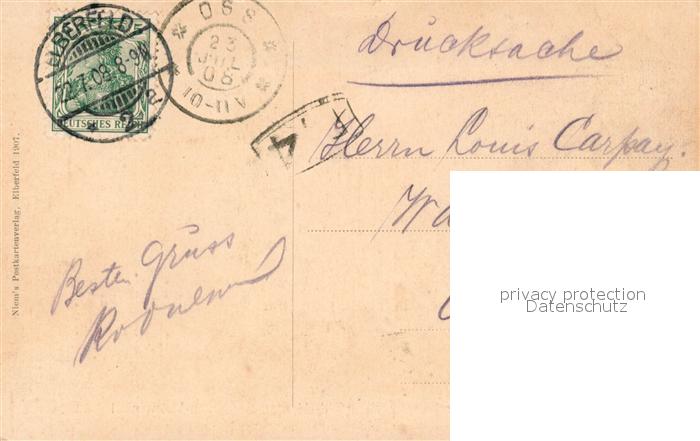 ELBERFELD
22.7.08.8-9N
* 2 e
DEUTSCHES REICH
OSS
23
JUL
08
10-11V
4
Drucksache
Herrn Louis Carpay.
Wa
Besten Gruss
Niem's Postkartenverlag, Elberfeld 1907.
privacy protection
Datenschutz